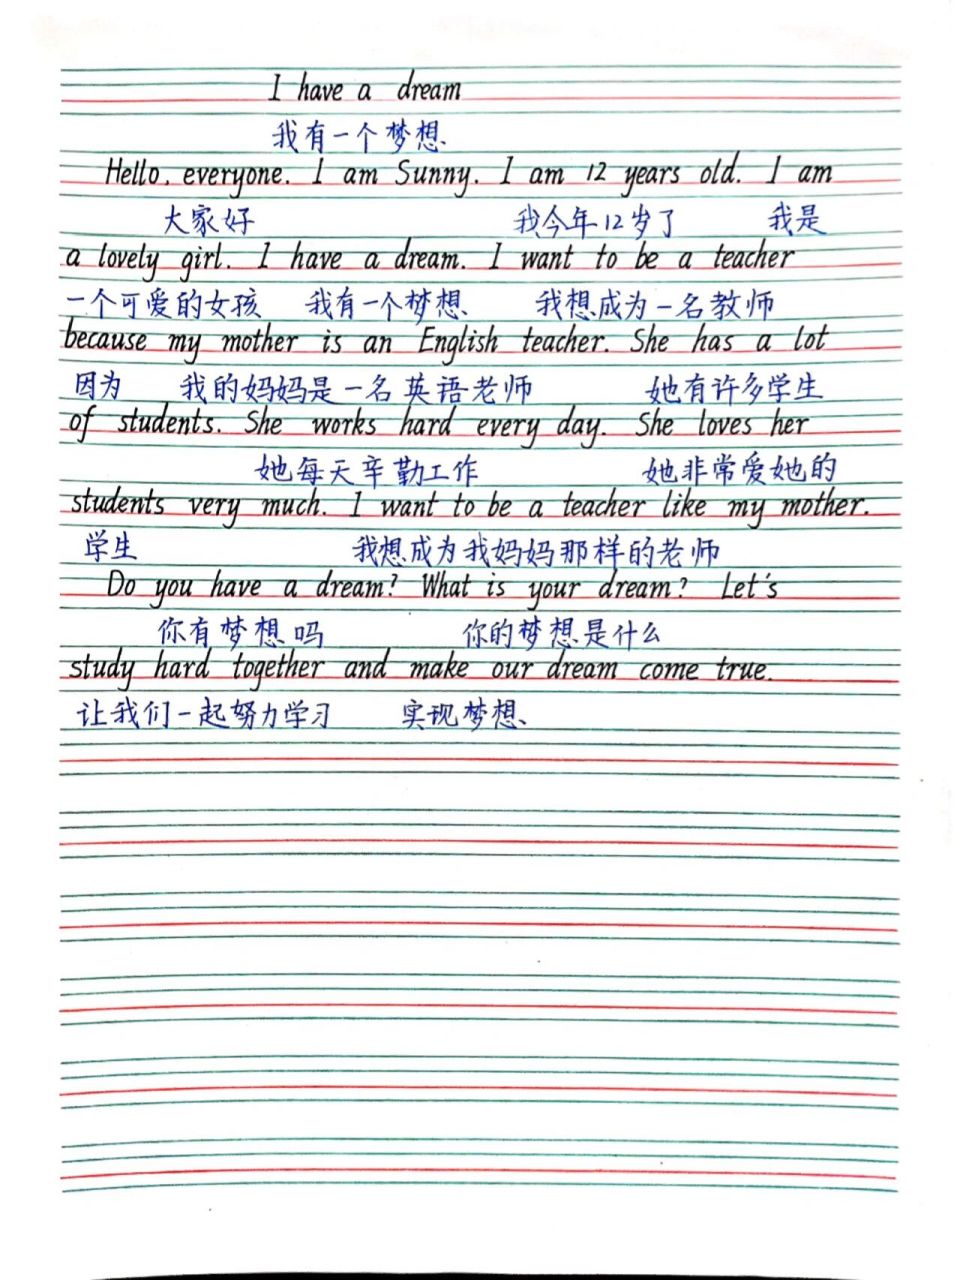 I have a dream
我有一个梦想
Hello, everyone. I am Sunny. I am 12 years old. I am
大家好 我今年12岁了 我是
a lovely girl. I have a dream. I want to be a teacher
一个可爱的女孩 我有一个梦想 我想成为一名教师
because my mother is an English teacher. She has a lot
因为 我的妈妈是一名英语老师 她有许多学生
of students. She works hard every day. She loves her
她每天辛勤工作 她非常爱她的
students very much. I want to be a teacher like my mother.
学生 我想成为我妈妈那样的老师
Do you have a dream? What is your dream? Let's
你有梦想吗 你的梦想是什么
study hard together and make our dream come true.
让我们一起努力学习 实现梦想